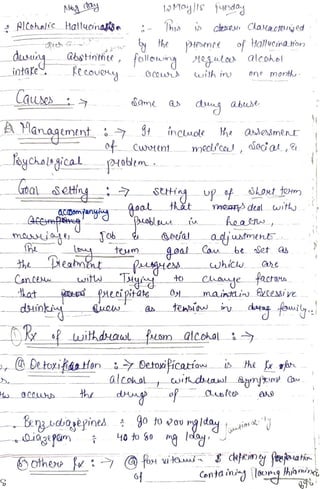 10 May/15 Sunday
: Alcoholic Hallucination :- This is characterized
by the presence of Hallucination
during abstinence, following regular alcohol
intake. Recovery occurs with in one month.
Causes : → Same as drug abuse
Management : → It include the assessment
of current medical, social, &
Psychological problem.
Goal Setting : → Setting up of short term
goal that deal with
accompanying problem in health,
marriage, Job & Social adjustment.
The long term goal can be set as
the Treatment progress which are
Concern with Trying to change factors
that precipitate or maintain Excessive
drinking such as tension in family.
① Rx of withdrawl from alcohol : →
ⓐ Detoxification : → Detoxification is the Rx of
alcohol, withdrawl symptoms can
occurs the drugs of choice are
. Benzodiazepines : 90 to 200 mg/day
. Diazepam : 40 to 80 mg /day.
others Rx : → ⓐ for vitamin deficiency preparation
of containing 100mg thiamine